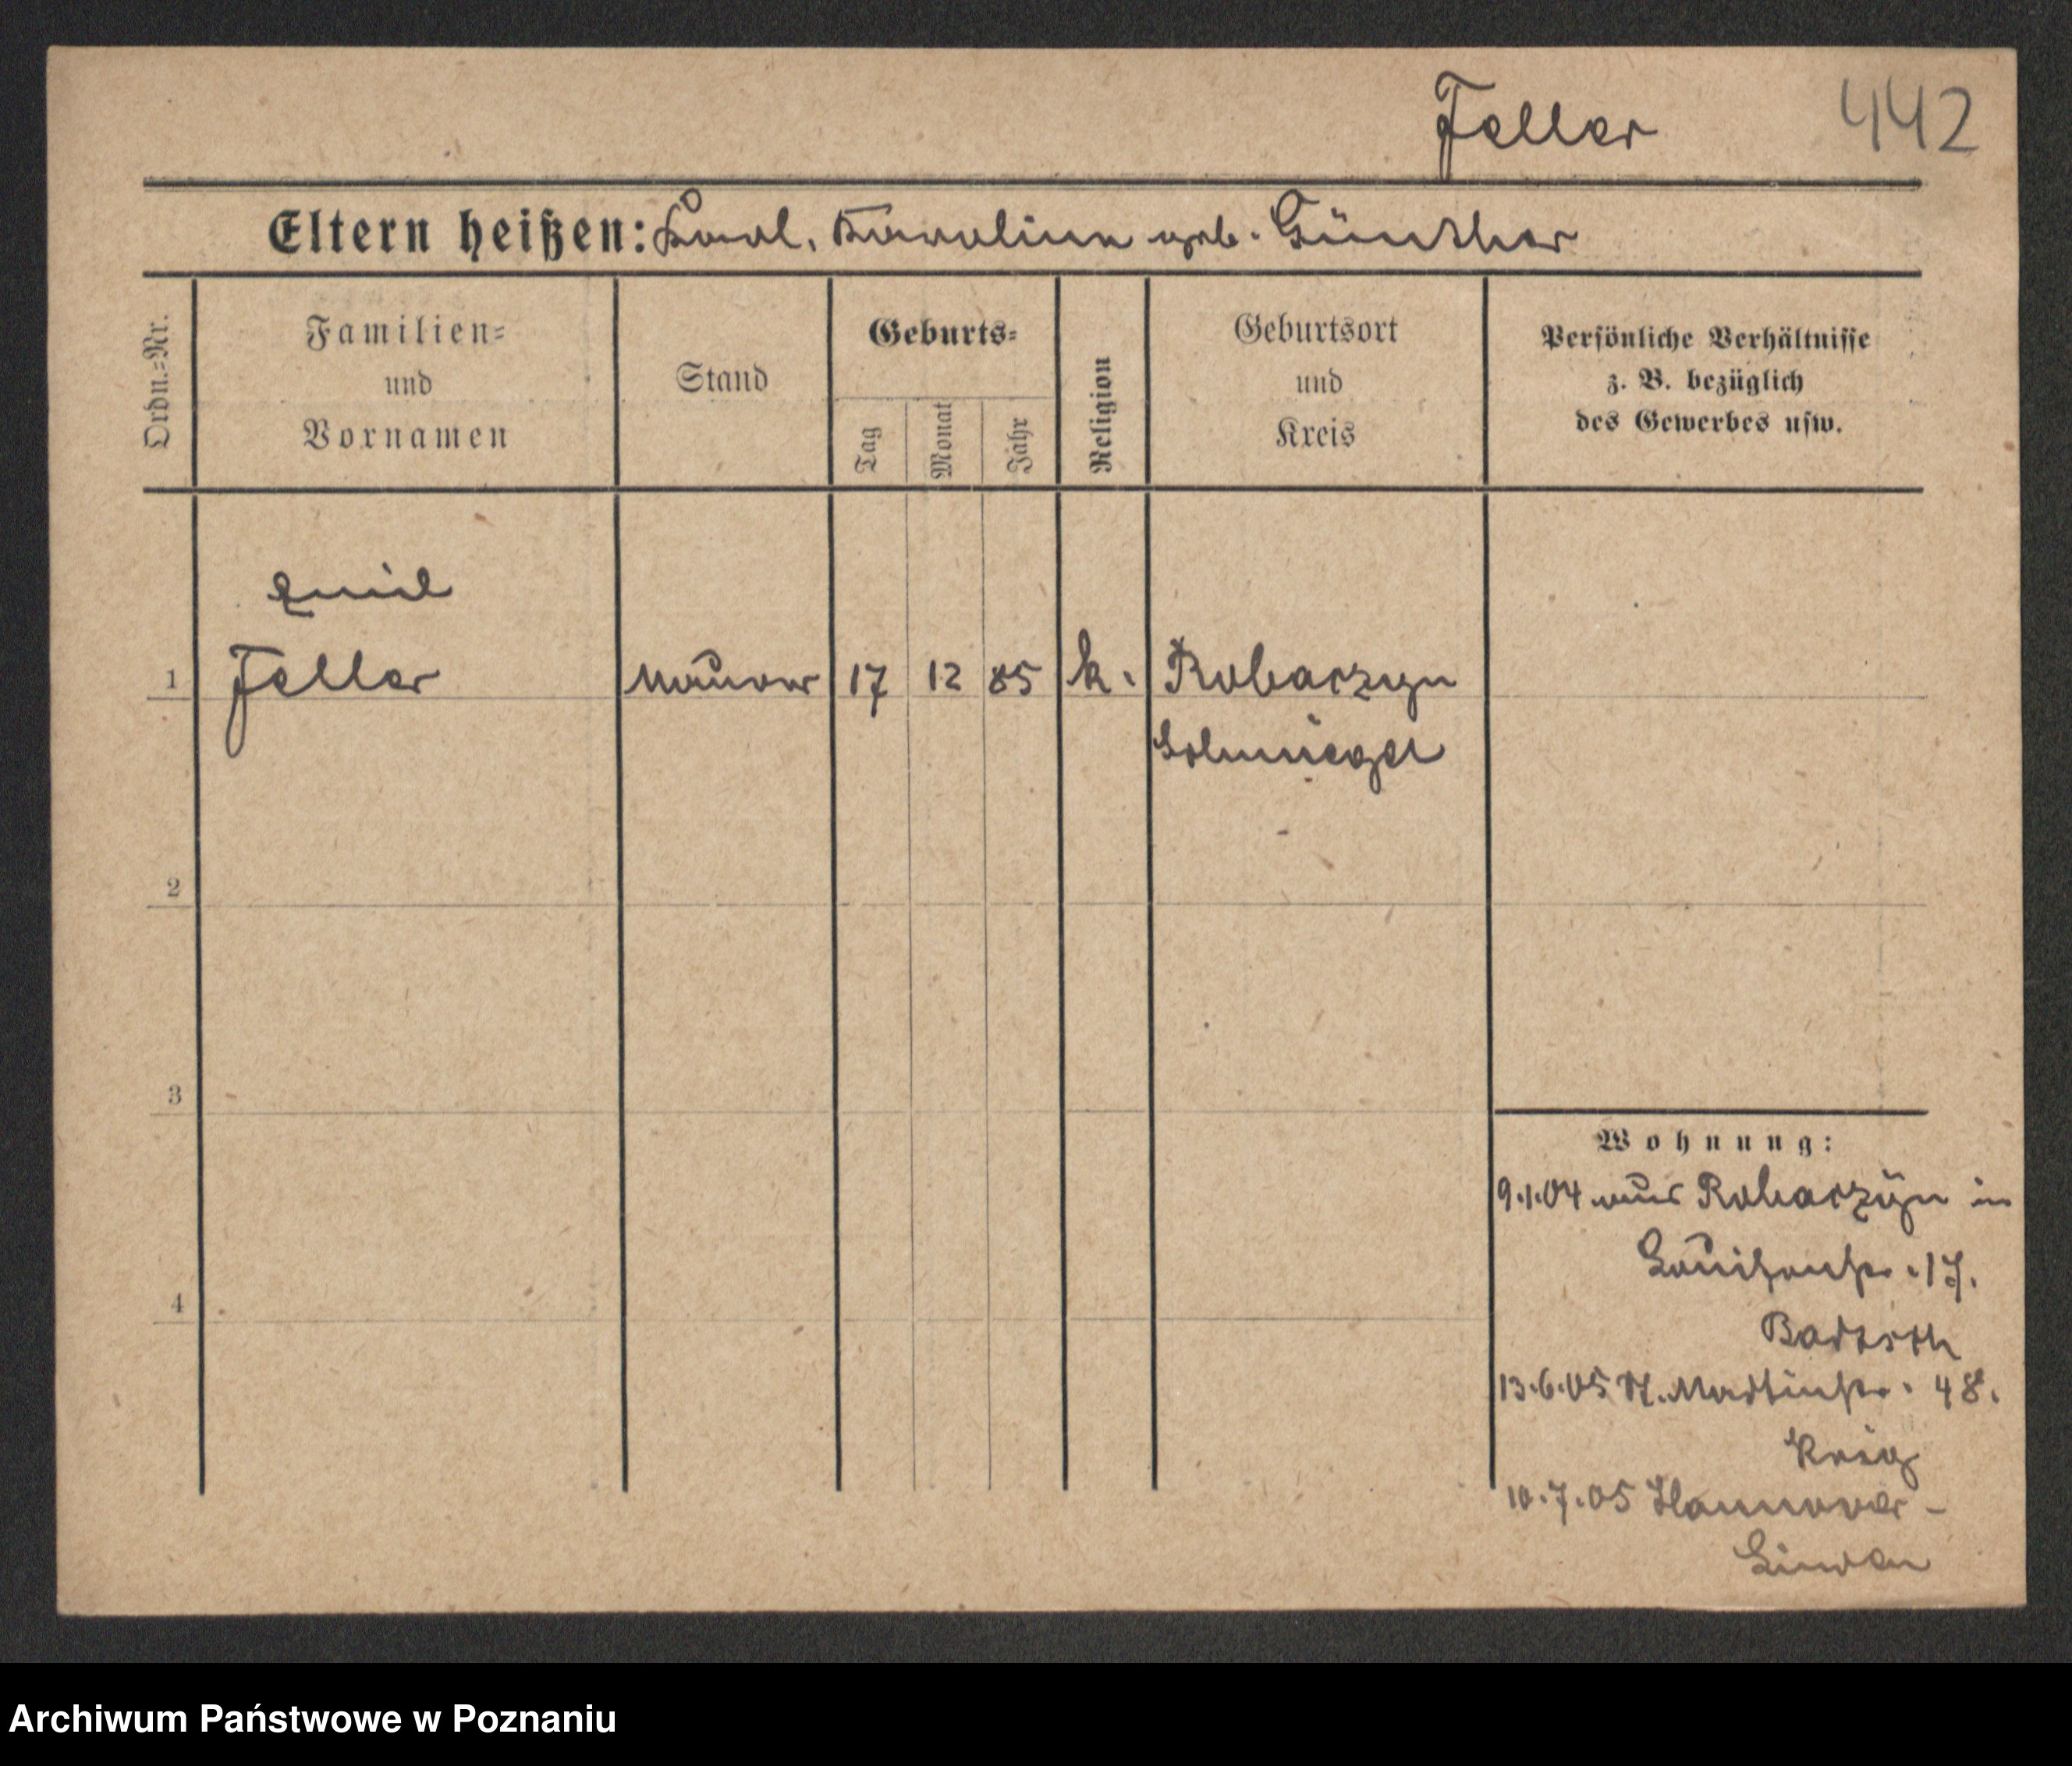 Feller 442
Eltern heißen: Karl, Karoline geb. Günther
Ordn.-Nr.
Familien-
und
Vornamen
Stand
Geburts-
Tag
Monat
Jahr
Religion
Geburtsort
und
Kreis
Persönliche Verhältnisse
z. B. bezüglich
des Gewerbes usw.
Emil
1 Feller Maurer 17 12 85 k. Robaczyn
Schmiegel
2
3
4
Wohnung:
9.1.04 aus Robaczyn in
Louisenstr. 17.
13.6.05 St. Martinstr. 48.
Krieg
10.7.05 Hannover-
Linden
Archiwum Państwowe w Poznaniu